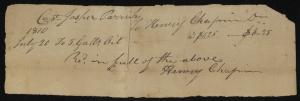 Capt Jasper Parrish To Henry Chapin Dr
1810
July 20 To 5 Galls @ $1.25 $6.25
Recd in full of the above
Henry Chapin